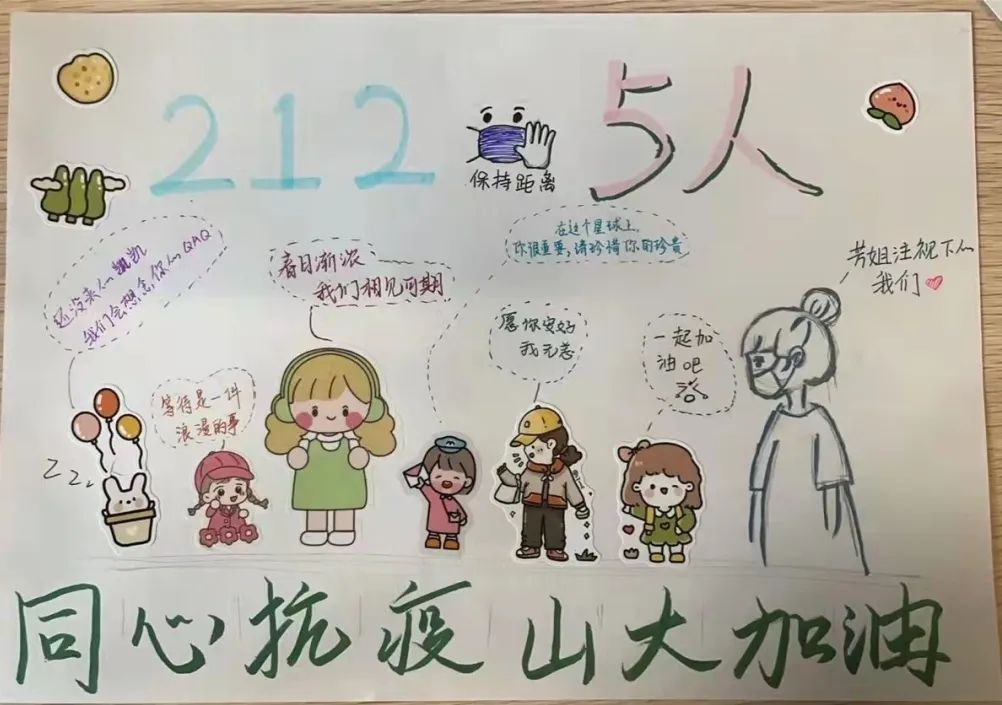 212
5人
保持距离
还没来的凯凯
我们会想念你的QAQ
春日渐浓
我们相见可期
在这个星球上,
你很重要,请珍惜你的珍贵
芳姐注视下的
我们
愿你安好
我无恙
一起加
油吧
等待是一件
浪漫的事
ZZZ
同心抗疫 山大加油